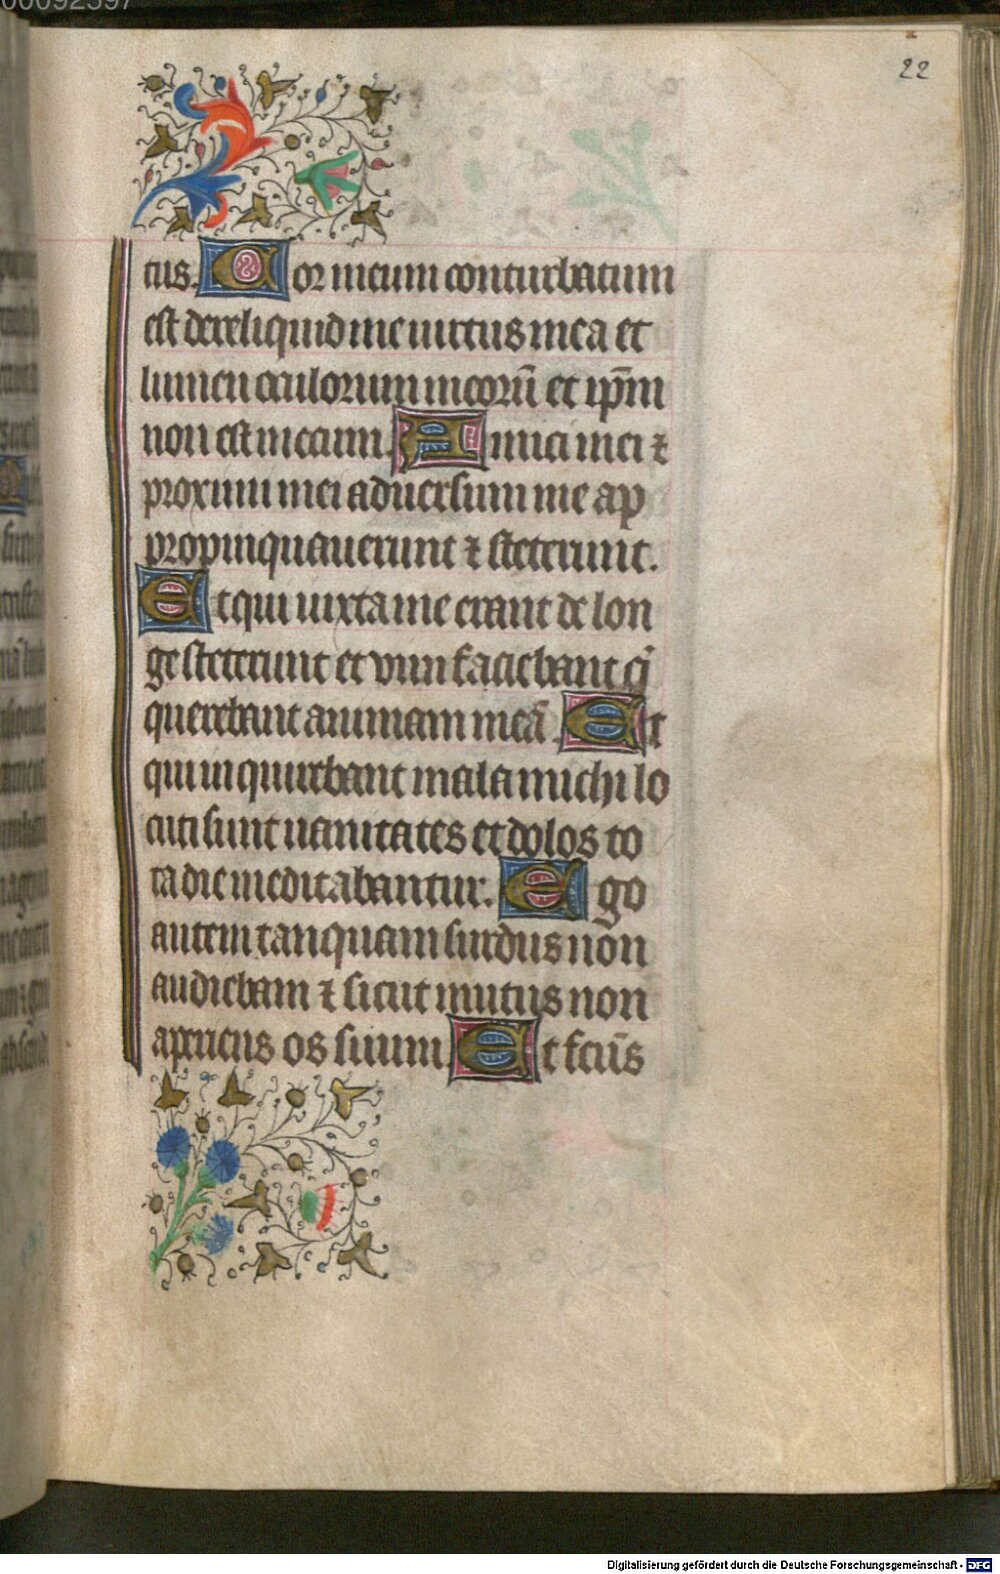 22
tus. Cor meum conturbatum
est dereliquid me uirtus mea et
lumen oculorum meorū et ip̄m
non est mecum. Amici mei ⁊
proximi mei aduersum me ap
propinquauerunt ⁊ steterunt.
Et qui iuxta me erant de lon
ge steterunt et vim faciebant q̄
querebant animam meā. Et
qui inquirebant mala michi lo
cuti sunt uanitates et dolos to
ta die meditabantur. Ego
autem tanquam surdus non
audiebam ⁊ sicut mutus non
aperiens os suum. Et fc̄us
Digitalisierung gefördert durch die Deutsche Forschungsgemeinschaft - DFG